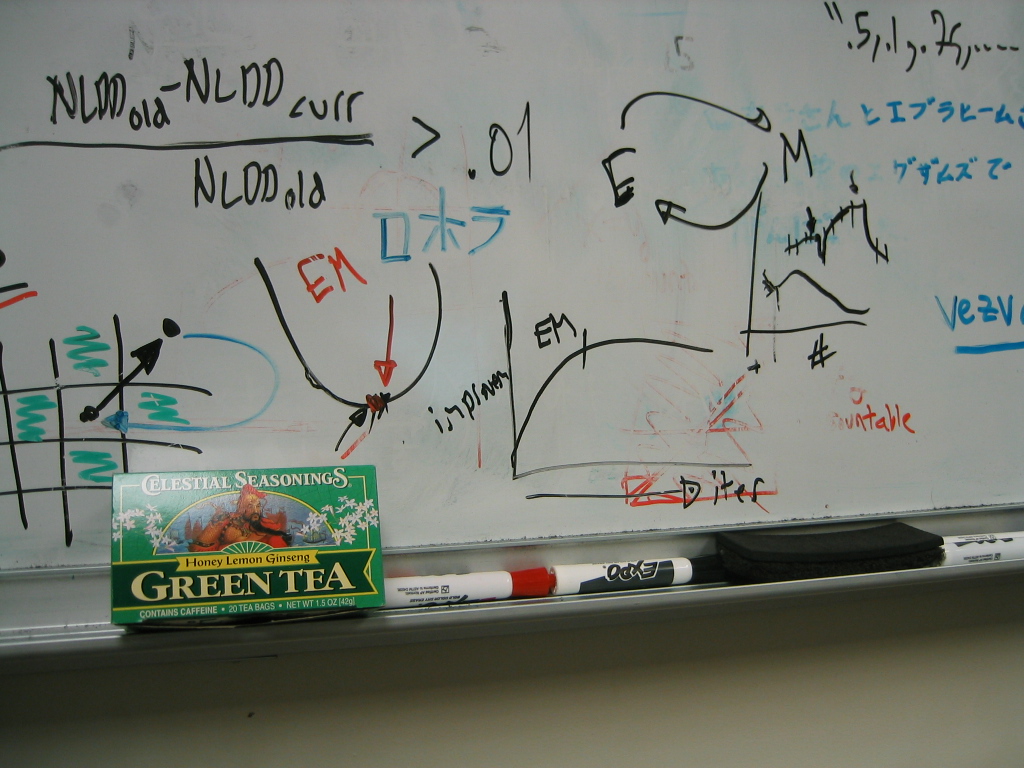 ".5, .1, .75, ....
NLDD old - NLDD curr
NLDD old
> .01
E
M
とエブラヒーム
グザムズで
ロホラ
EM
EM
improvem
iter
#
+
CELESTIAL SEASONINGS
Honey Lemon Ginseng
GREEN TEA
CONTAINS CAFFEINE • 20 TEA BAGS • NET WT 1.5 OZ (42g)
EXPO